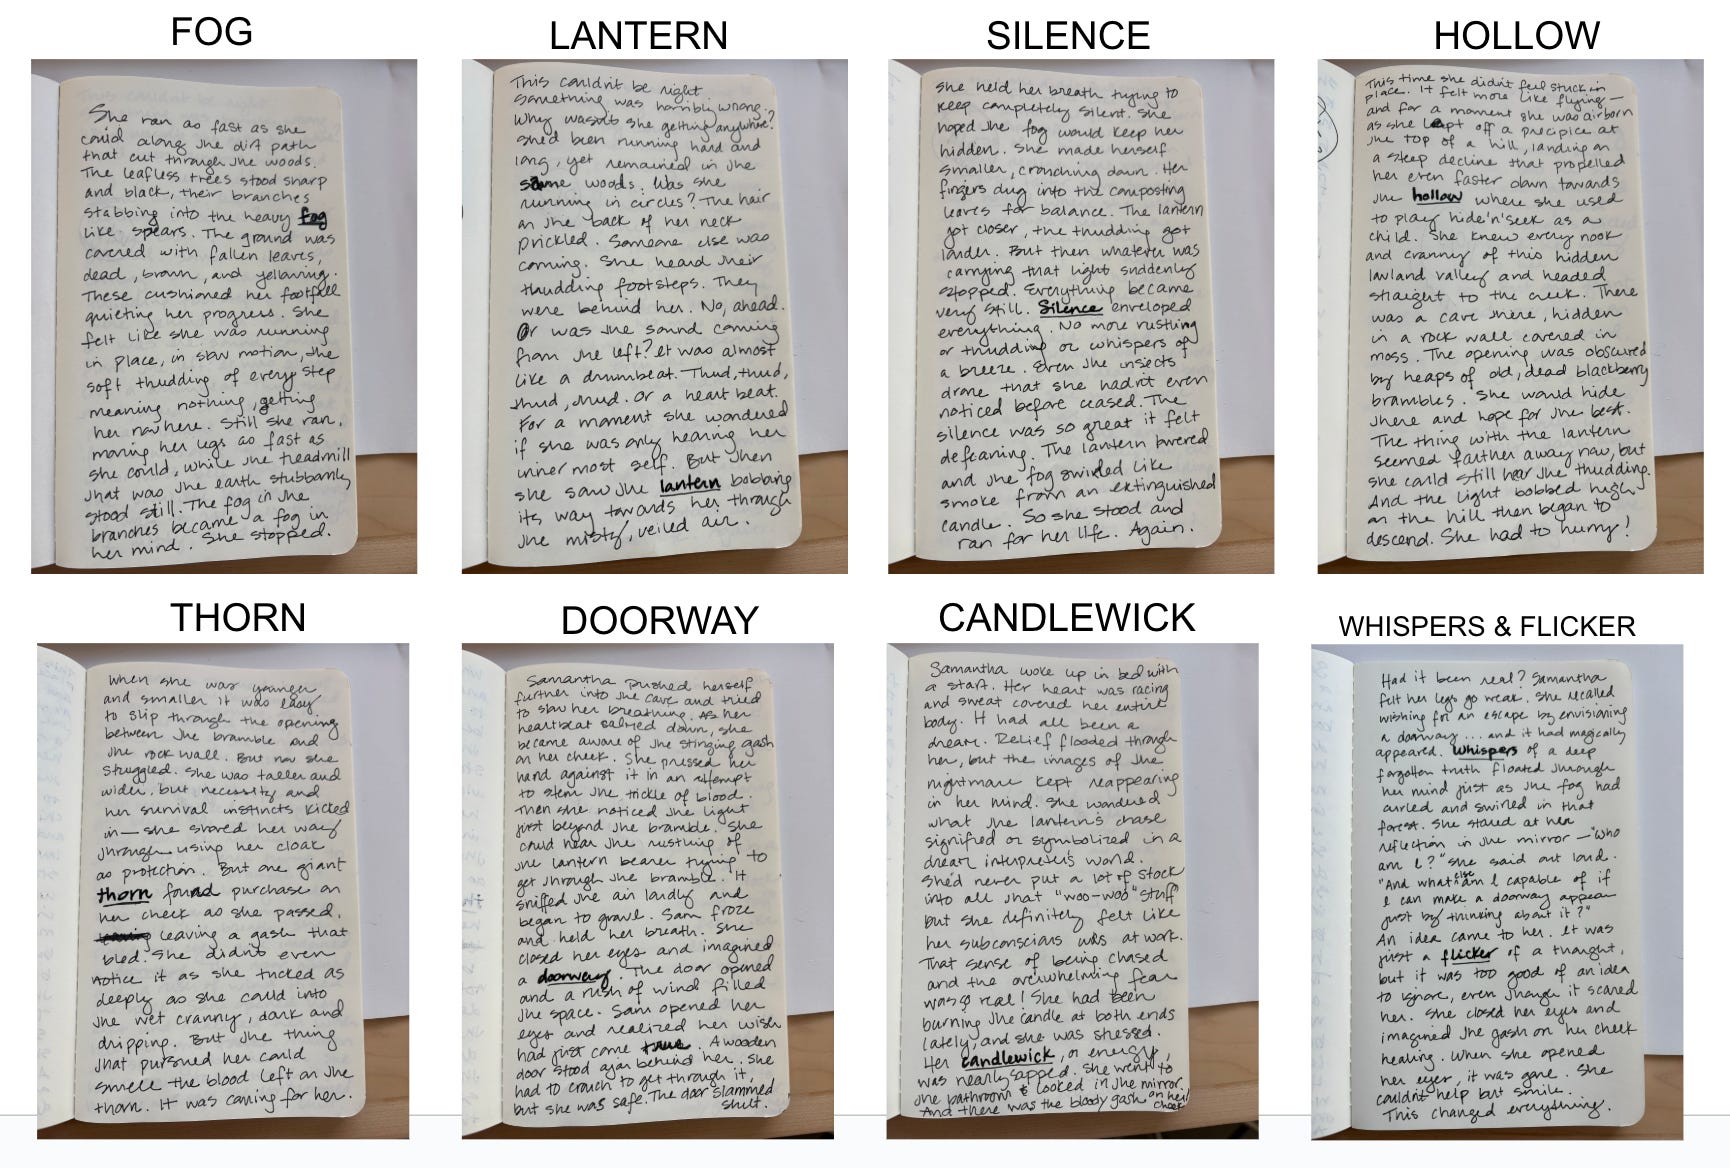 FOG
She ran as fast as she
could along the dirt path
that cut through the woods.
The leafless trees stood sharp
and black, their branches
stabbing into the heavy fog
like spears. The ground was
covered with fallen leaves,
dead, brown, and yellowing.
These cushioned her footfall
quieting her progress. She
felt like she was running
in place, in slow motion, the
soft thudding of every step
meaning nothing, getting
her nowhere. Still she ran,
moving her legs as fast as
she could, while the treadmill
that was the earth stubbornly
stood still. The fog in the
branches became a fog in
her mind. She stopped.
LANTERN
This couldn't be right
Something was horribly wrong.
Why wasn't she getting anywhere?
She'd been running hard and
long, yet remained in the
same woods. Was she
running in circles? The hair
on the back of her neck
prickled. Someone else was
coming. She heard their
thudding footsteps. They
were behind her. No, ahead.
Or was the sound coming
from the left? It was almost
like a drumbeat. Thud, thud,
thud, thud. Or a heart beat.
For a moment she wondered
if she was only hearing her
inner most self. But then
she saw the lantern bobbing
its way towards her through
the misty, veiled air.
SILENCE
She held her breath trying to
keep completely silent. She
hoped the fog would keep her
hidden. She made herself
smaller, crouching down. Her
fingers dug into the composting
leaves for balance. The lantern
got closer, the thudding got
louder. But then whatever was
carrying that light suddenly
stopped. Everything became
very still. Silence enveloped
everything. No more rustling
or thudding or whispers of
a breeze. Even the insects
drone that she hadn't even
noticed before ceased. The
silence was so great it felt
defeaning. The lantern lowered
and the fog swirled like
smoke from an extinguished
candle. So she stood and
ran for her life. Again.
HOLLOW
This time she didn't feel stuck in
place. It felt more like flying—
and for a moment she was airborn
as she leapt off a precipice at
the top of a hill, landing on
a steep decline that propelled
her even faster down towards
the hollow where she used
to play hide'n'seek as a
child. She knew every nook
and cranny of this hidden
lowland valley and headed
straight to the creek. There
was a cave there, hidden
in a rock wall covered in
moss. The opening was obscured
by heaps of old, dead blackberry
brambles. She would hide
there and hope for the best.
The thing with the lantern
seemed farther away now, but
she could still hear the thudding.
And the light bobbed high
on the hill then began to
descend. She had to hurry!
THORN
When she was younger
and smaller it was easy
to slip through the opening
between the bramble and
the rock wall. But now she
struggled. She was taller and
wider, but necessity and
her survival instincts kicked
in— she shoved her way
through using her cloak
as protection. But one giant
thorn found purchase on
her cheek as she passed,
leaving a gash that
bled. She didn't even
notice it as she tucked as
deeply as she could into
the wet cranny, dark and
dripping. But the thing
that pursued her could
smell the blood left on the
thorn. It was coming for her.
DOORWAY
Samantha pushed herself
further into the cave and tried
to slow her breathing. As her
heartbeat calmed down, she
became aware of the stinging gash
on her cheek. She pressed her
hand against it in an attempt
to stem the trickle of blood.
Then she noticed the light
just beyond the bramble. She
could hear the rustling of
the lantern bearer trying to
get through the bramble. It
sniffed the air loudly and
began to growl. Sam froze
and held her breath. She
closed her eyes and imagined
a doorway. The door opened
and a rush of wind filled
the space. Sam opened her
eyes and realized her wish
had just come true. A wooden
door stood ajar behind her. She
had to crouch to get through it,
but she was safe. The door slammed
shut.
CANDLEWICK
Samantha woke up in bed with
a start. Her heart was racing
and sweat covered her entire
body. It had all been a
dream. Relief flooded through
her, but the images of the
nightmare kept reappearing
in her mind. She wondered
what the lantern's chase
signified or symbolized in a
dream interpreter's world.
She'd never put a lot of stock
into all that "woo-woo" stuff
but she definitely felt like
her subconscious was at work.
That sense of being chased
and the overwhelming fear
was so real! She had been
burning the candle at both ends
lately, and she was stressed.
Her candlewick, or energy,
was nearly sapped. She went to
the bathroom & looked in the mirror.
And there was the bloody gash on her
cheek!
WHISPERS & FLICKER
Had it been real? Samantha
felt her legs go weak. She recalled
wishing for an escape by envisioning
a doorway... and it had magically
appeared. Whispers of a deep
forgotten truth floated through
her mind just as the fog had
curled and swirled in that
forest. She stared at her
reflection in the mirror—"Who
am I?" she said out loud.
"And what else am I capable of if
I can make a doorway appear
just by thinking about it?"
An idea came to her. It was
just a flicker of a thought,
but it was too good of an idea
to ignore, even though it scared
her. She closed her eyes and
imagined the gash on her cheek
healing. When she opened
her eyes, it was gone. She
couldn't help but smile.
This changed everything.